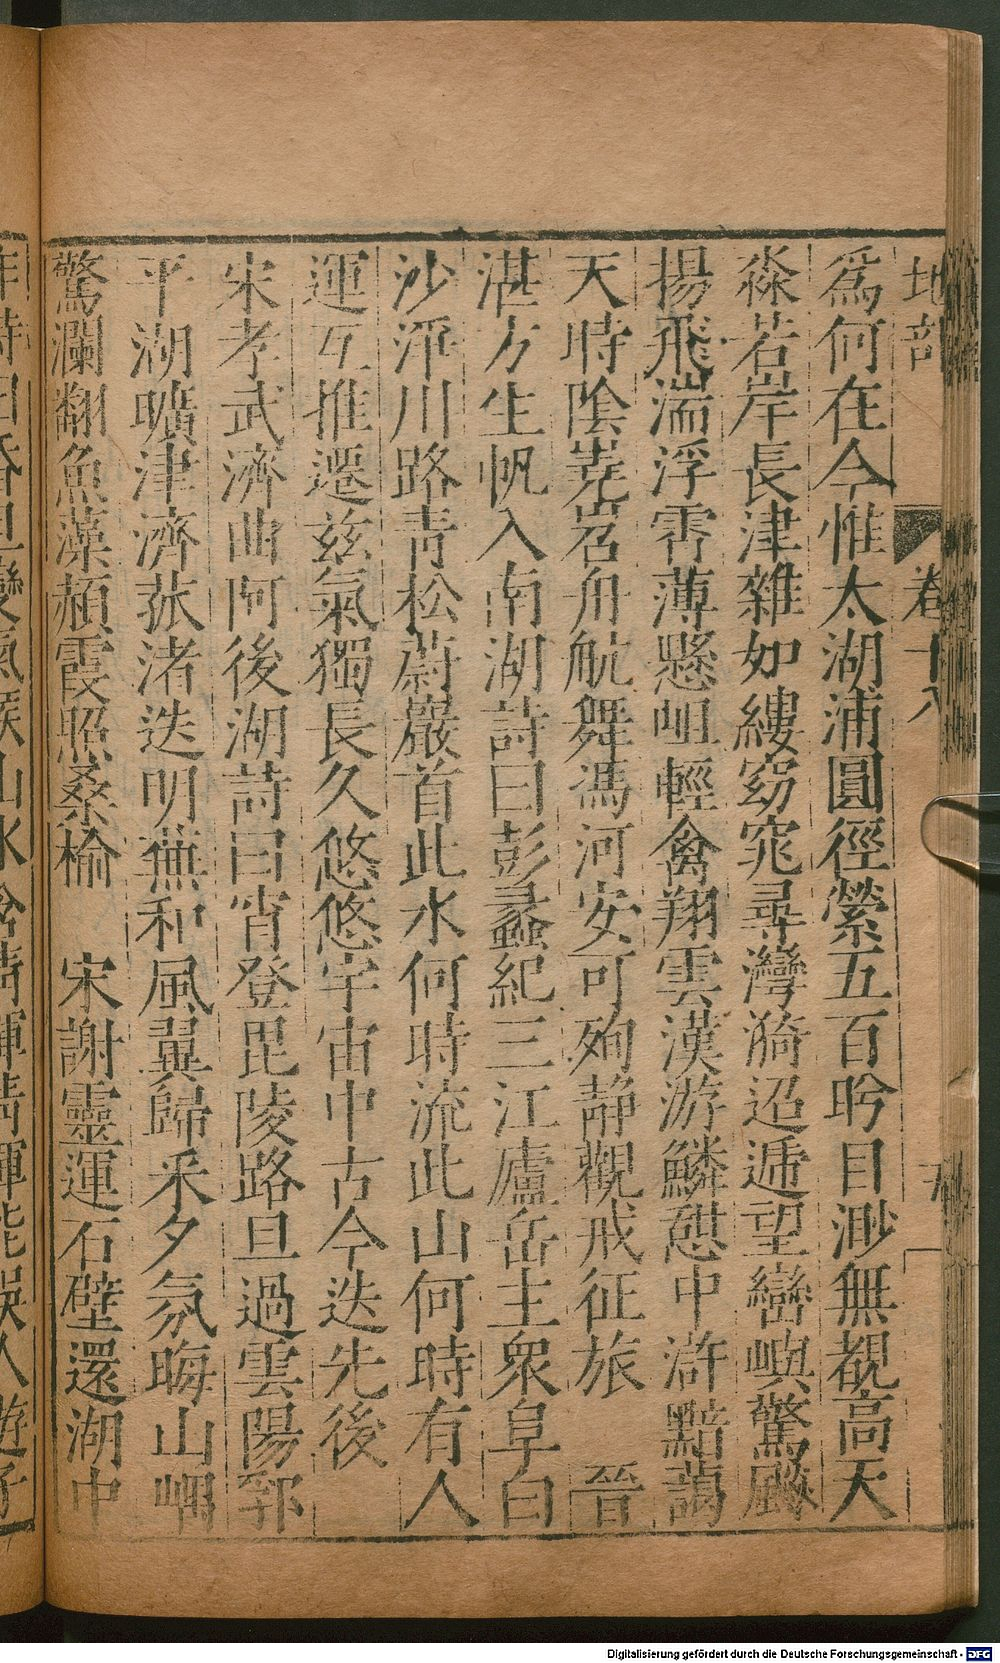 地部
卷十八
爲何在今惟太湖浦圓徑縈五百眇目渺無覩高天
淼若岸長津雜如縷窈窕尋灣漪迢遞望巒嶼驚飈
揚飛湍浮霄薄懸岨輕禽翔雲漢游鱗憇中滸黯藹
天時陰嶤岧舟航舞馮河安可殉静觀戒征旅 晉
湛方生帆入南湖詩曰彭蠡紀三江廬岳主衆阜白
沙淨川路青松蔚巖首此水何時流此山何時有人
運互推遷兹氣獨長久悠悠宇宙中古今迭先後
宋孝武濟曲阿後湖詩曰宵登毘陵路旦過雲陽郛
平湖曠津濟菰渚迭明蕪和風翼歸釆夕氛晦山嵎
驚瀾翻魚藻頳霞照桑榆 宋謝靈運石壁還湖中
作詩曰昏旦變氣候山水含清暉清暉能娱人遊子
Digitalisierung gefördert durch die Deutsche Forschungsgemeinschaft - DFG